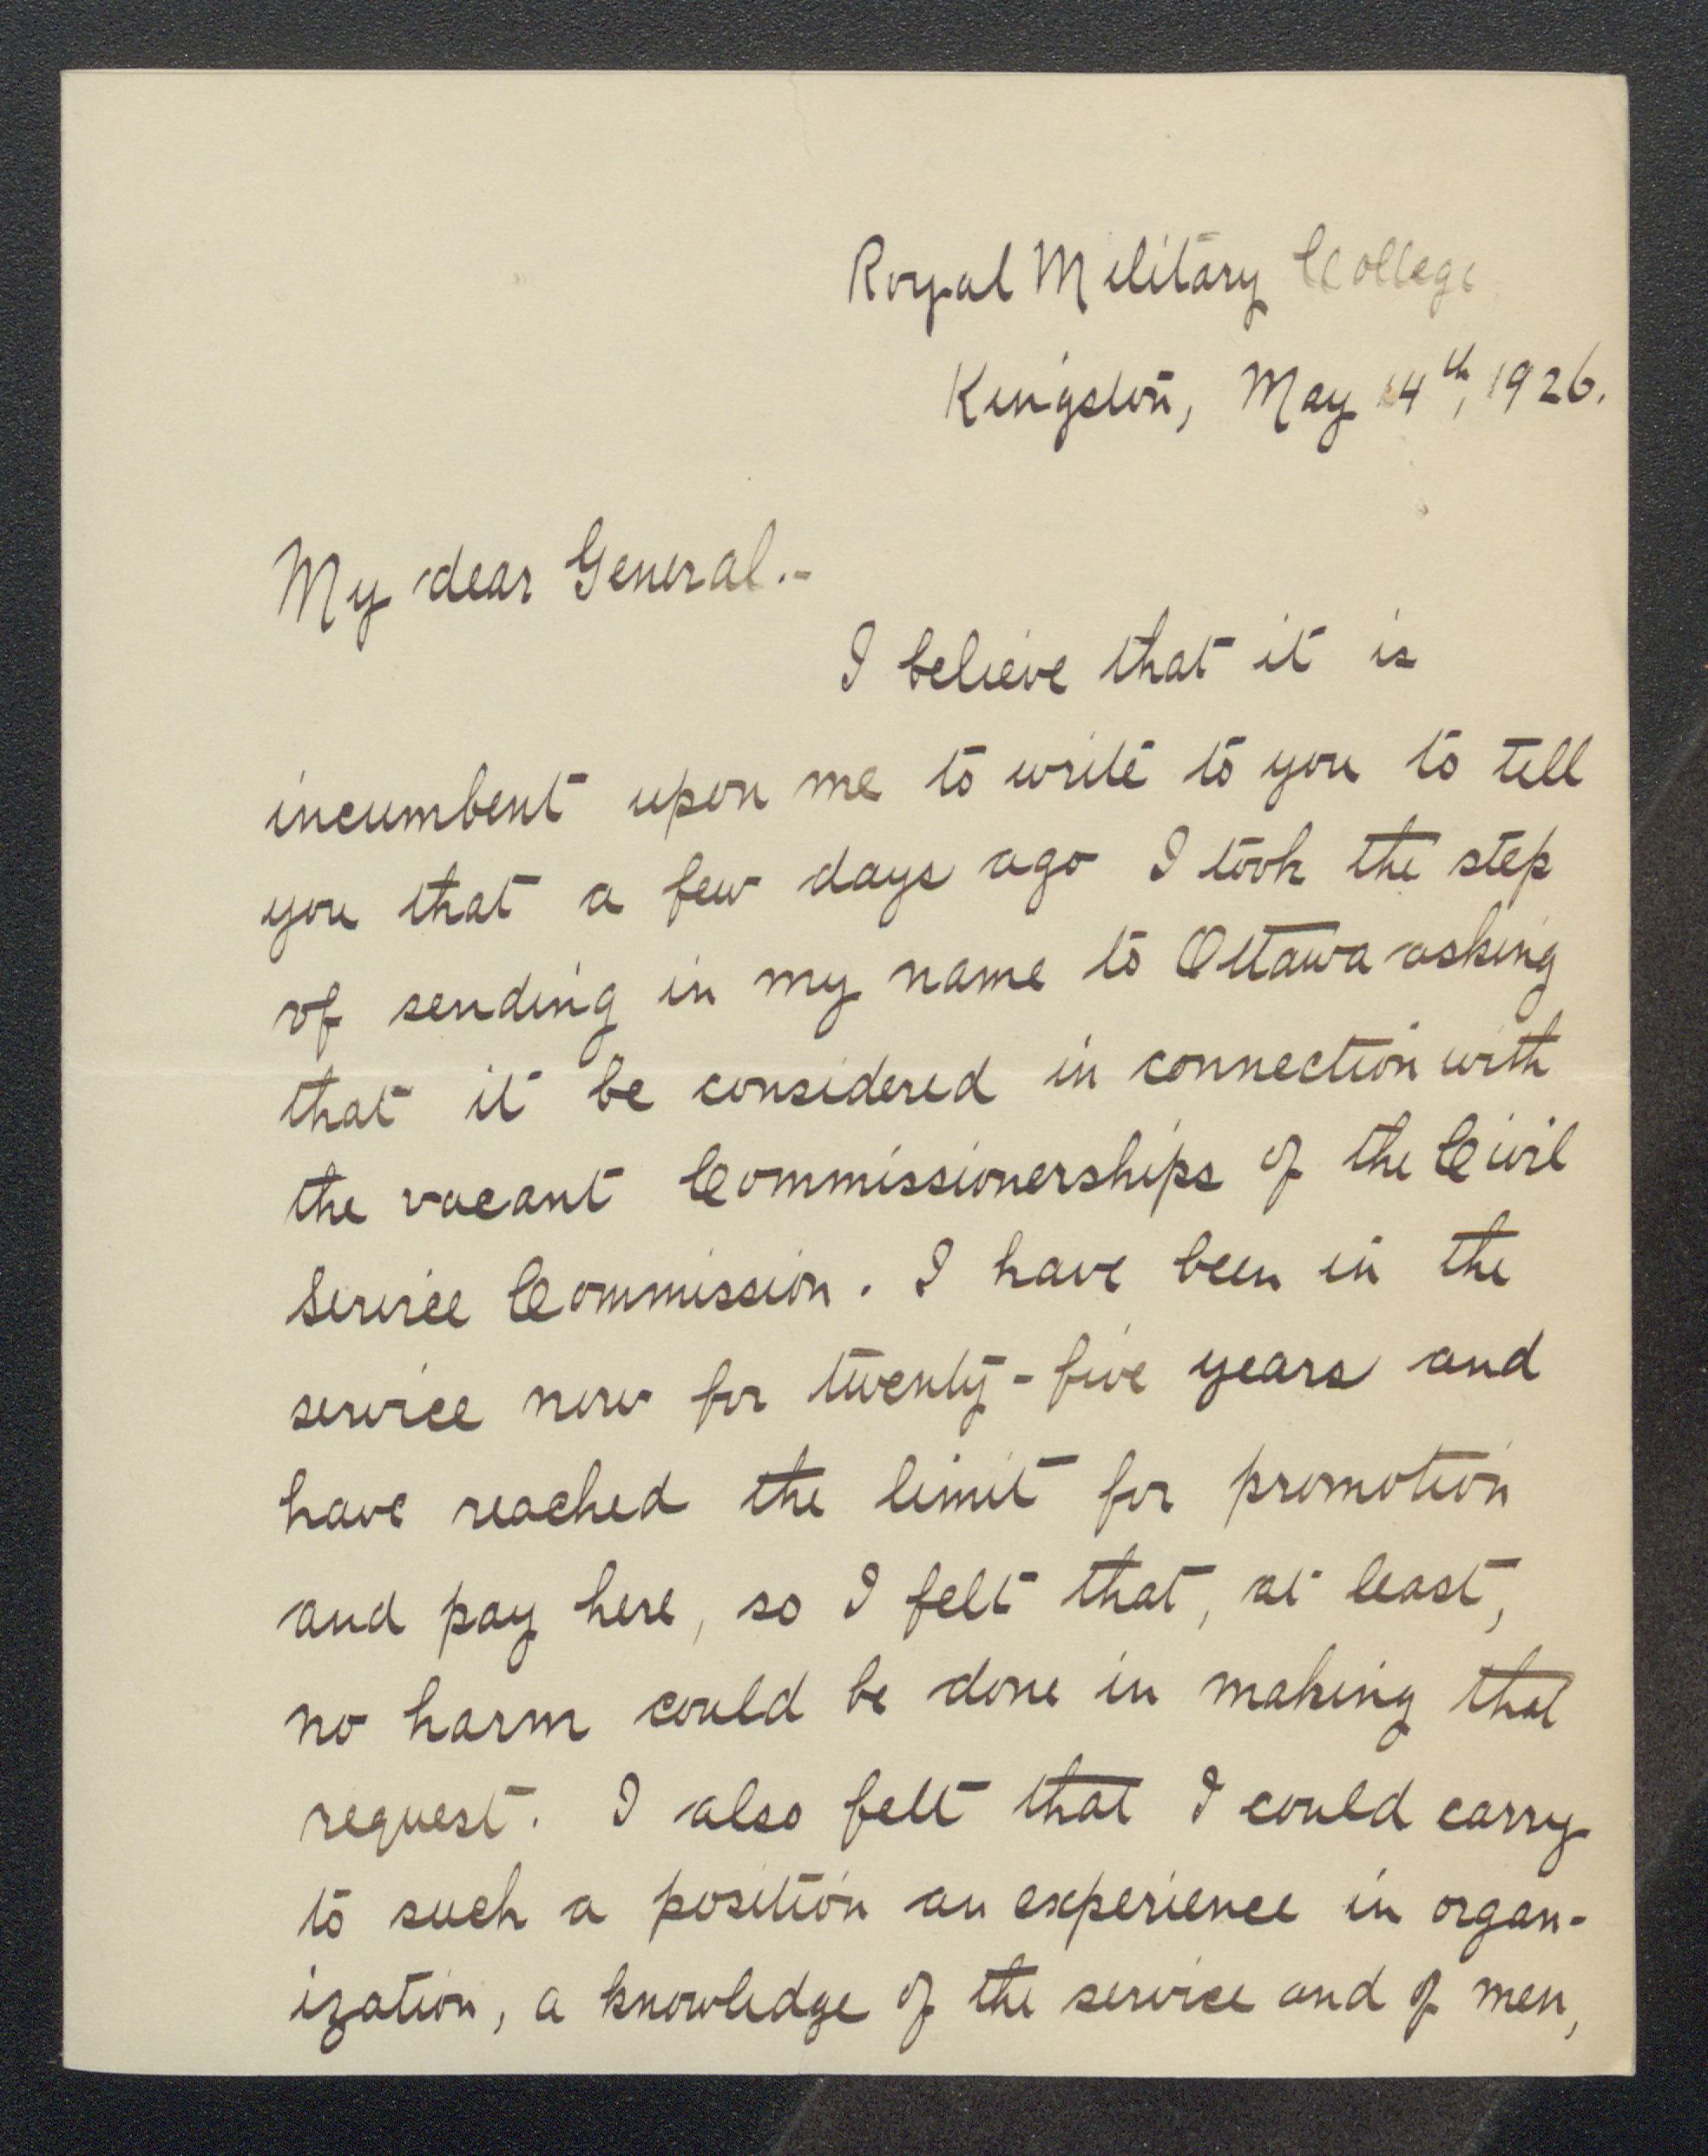 Royal Military College
Kingston, May 14th, 1926.
My dear General.-
I believe that it is
incumbent upon me to write to you to tell
you that a few days ago I took the step
of sending in my name to Ottawa asking
that it be considered in connection with
the vacant Commissionerships of the Civil
Service Commission. I have been in the
service now for twenty-five years and
have reached the limit for promotion
and pay here, so I felt that, at least,
no harm could be done in making that
request. I also felt that I could carry
to such a position an experience in organ-
ization, a knowledge of the service and of men,